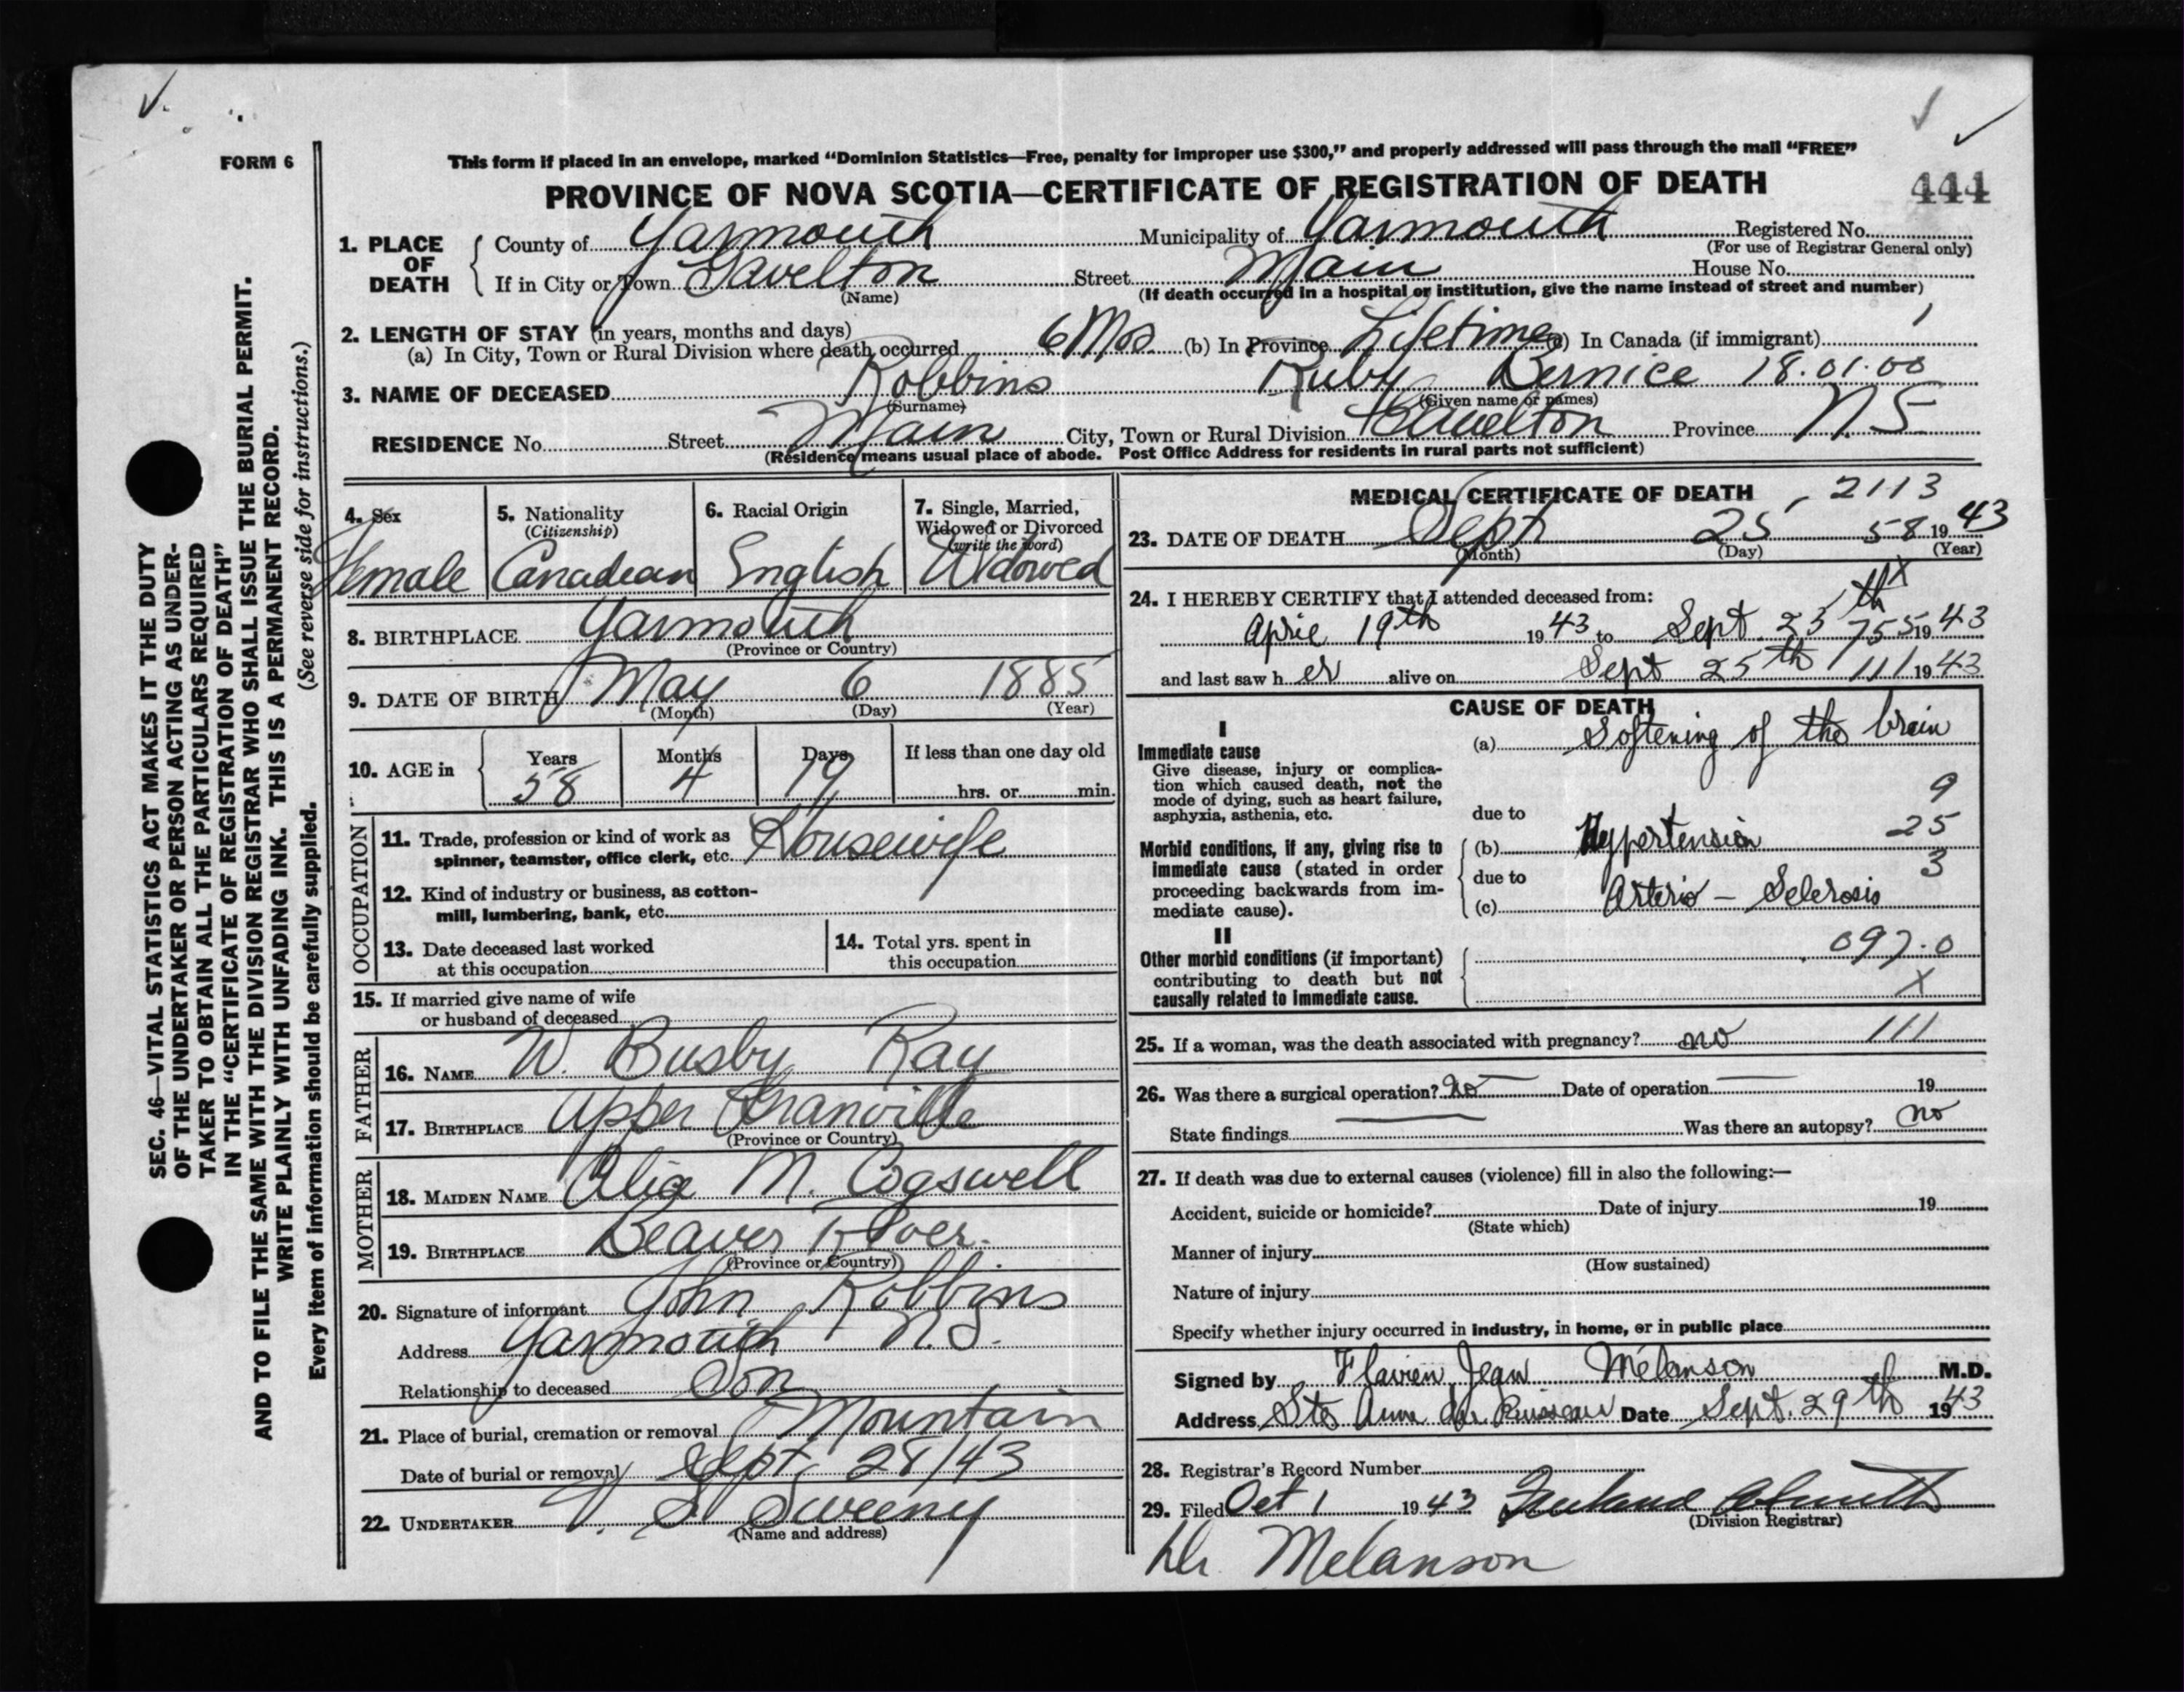 FORM 6
This form if placed in an envelope, marked "Dominion Statistics—Free, penalty for improper use $300," and properly addressed will pass through the mail "FREE"
PROVINCE OF NOVA SCOTIA—CERTIFICATE OF REGISTRATION OF DEATH 444
SEC. 46—VITAL STATISTICS ACT MAKES IT THE DUTY
OF THE UNDERTAKER OR PERSON ACTING AS UNDER-
TAKER TO OBTAIN ALL THE PARTICULARS REQUIRED
IN THE "CERTIFICATE OF REGISTRATION OF DEATH"
AND TO FILE THE SAME WITH THE DIVISION REGISTRAR WHO SHALL ISSUE THE BURIAL PERMIT.
WRITE PLAINLY WITH UNFADING INK. THIS IS A PERMANENT RECORD.
Every item of information should be carefully supplied. (See reverse side for instructions.)
1. PLACE OF DEATH
County of Yarmouth Municipality of Yarmouth Registered No.
(For use of Registrar General only)
If in City or Town Gavelton Street Main House No.
(Name) (If death occurred in a hospital or institution, give the name instead of street and number)
2. LENGTH OF STAY (in years, months and days)
(a) In City, Town or Rural Division where death occurred 6 Mos. (b) In Province Lifetime (c) In Canada (if immigrant)
3. NAME OF DECEASED Robbins Ruby Bernice 18.01.00
(Surname) (Given name or names)
RESIDENCE No. Street Main City, Town or Rural Division Gavelton Province N S
(Residence means usual place of abode. Post Office Address for residents in rural parts not sufficient)
4. Sex
Female
5. Nationality
(Citizenship)
Canadian
6. Racial Origin
English
7. Single, Married,
Widowed or Divorced
(write the word)
Widowed
8. BIRTHPLACE Yarmouth
(Province or Country)
9. DATE OF BIRTH May 6 1885
(Month) (Day) (Year)
10. AGE in
Years Months Days If less than one day old
58 4 19 hrs. or min.
OCCUPATION
11. Trade, profession or kind of work as
spinner, teamster, office clerk, etc. Housewife
12. Kind of industry or business, as cotton-
mill, lumbering, bank, etc.
13. Date deceased last worked
at this occupation
14. Total yrs. spent in
this occupation
15. If married give name of wife
or husband of deceased
FATHER
16. NAME W. Busby Ray
17. BIRTHPLACE Upper Granville
(Province or Country)
MOTHER
18. MAIDEN NAME Alice M. Cogswell
19. BIRTHPLACE Beaver River.
(Province or Country)
20. Signature of informant John Robbins
Address Yarmouth N.S.
Relationship to deceased Son
21. Place of burial, cremation or removal Mountain
Date of burial or removal Sept. 28/43
22. UNDERTAKER V. S. Sweeny
(Name and address)
MEDICAL CERTIFICATE OF DEATH 2113
23. DATE OF DEATH Sept 25 58 1943
(Month) (Day) (Year)
24. I HEREBY CERTIFY that I attended deceased from: X
April 19th 1943 to Sept. 25th 755 1943
and last saw her alive on Sept 25th 111 1943
CAUSE OF DEATH
I
Immediate cause
Give disease, injury or complica-
tion which caused death, not the
mode of dying, such as heart failure,
asphyxia, asthenia, etc.
(a) Softening of the brain
9
due to
Morbid conditions, if any, giving rise to
immediate cause (stated in order
proceeding backwards from im-
mediate cause).
(b) Hypertension 25
due to 3
(c) Arterio - Sclerosis
II
Other morbid conditions (if important)
contributing to death but not
causally related to immediate cause.
097.0
X
25. If a woman, was the death associated with pregnancy? no 111
26. Was there a surgical operation? no Date of operation 19
State findings Was there an autopsy? no
27. If death was due to external causes (violence) fill in also the following:—
Accident, suicide or homicide? Date of injury 19
(State which)
Manner of injury
(How sustained)
Nature of injury
Specify whether injury occurred in industry, in home, or in public place
Signed by Flavien Jean Melanson M.D.
Address Ste Anne du Ruisseau Date Sept. 29th 1943
28. Registrar's Record Number
29. Filed Oct 1 1943
(Division Registrar)
Dr. Melanson